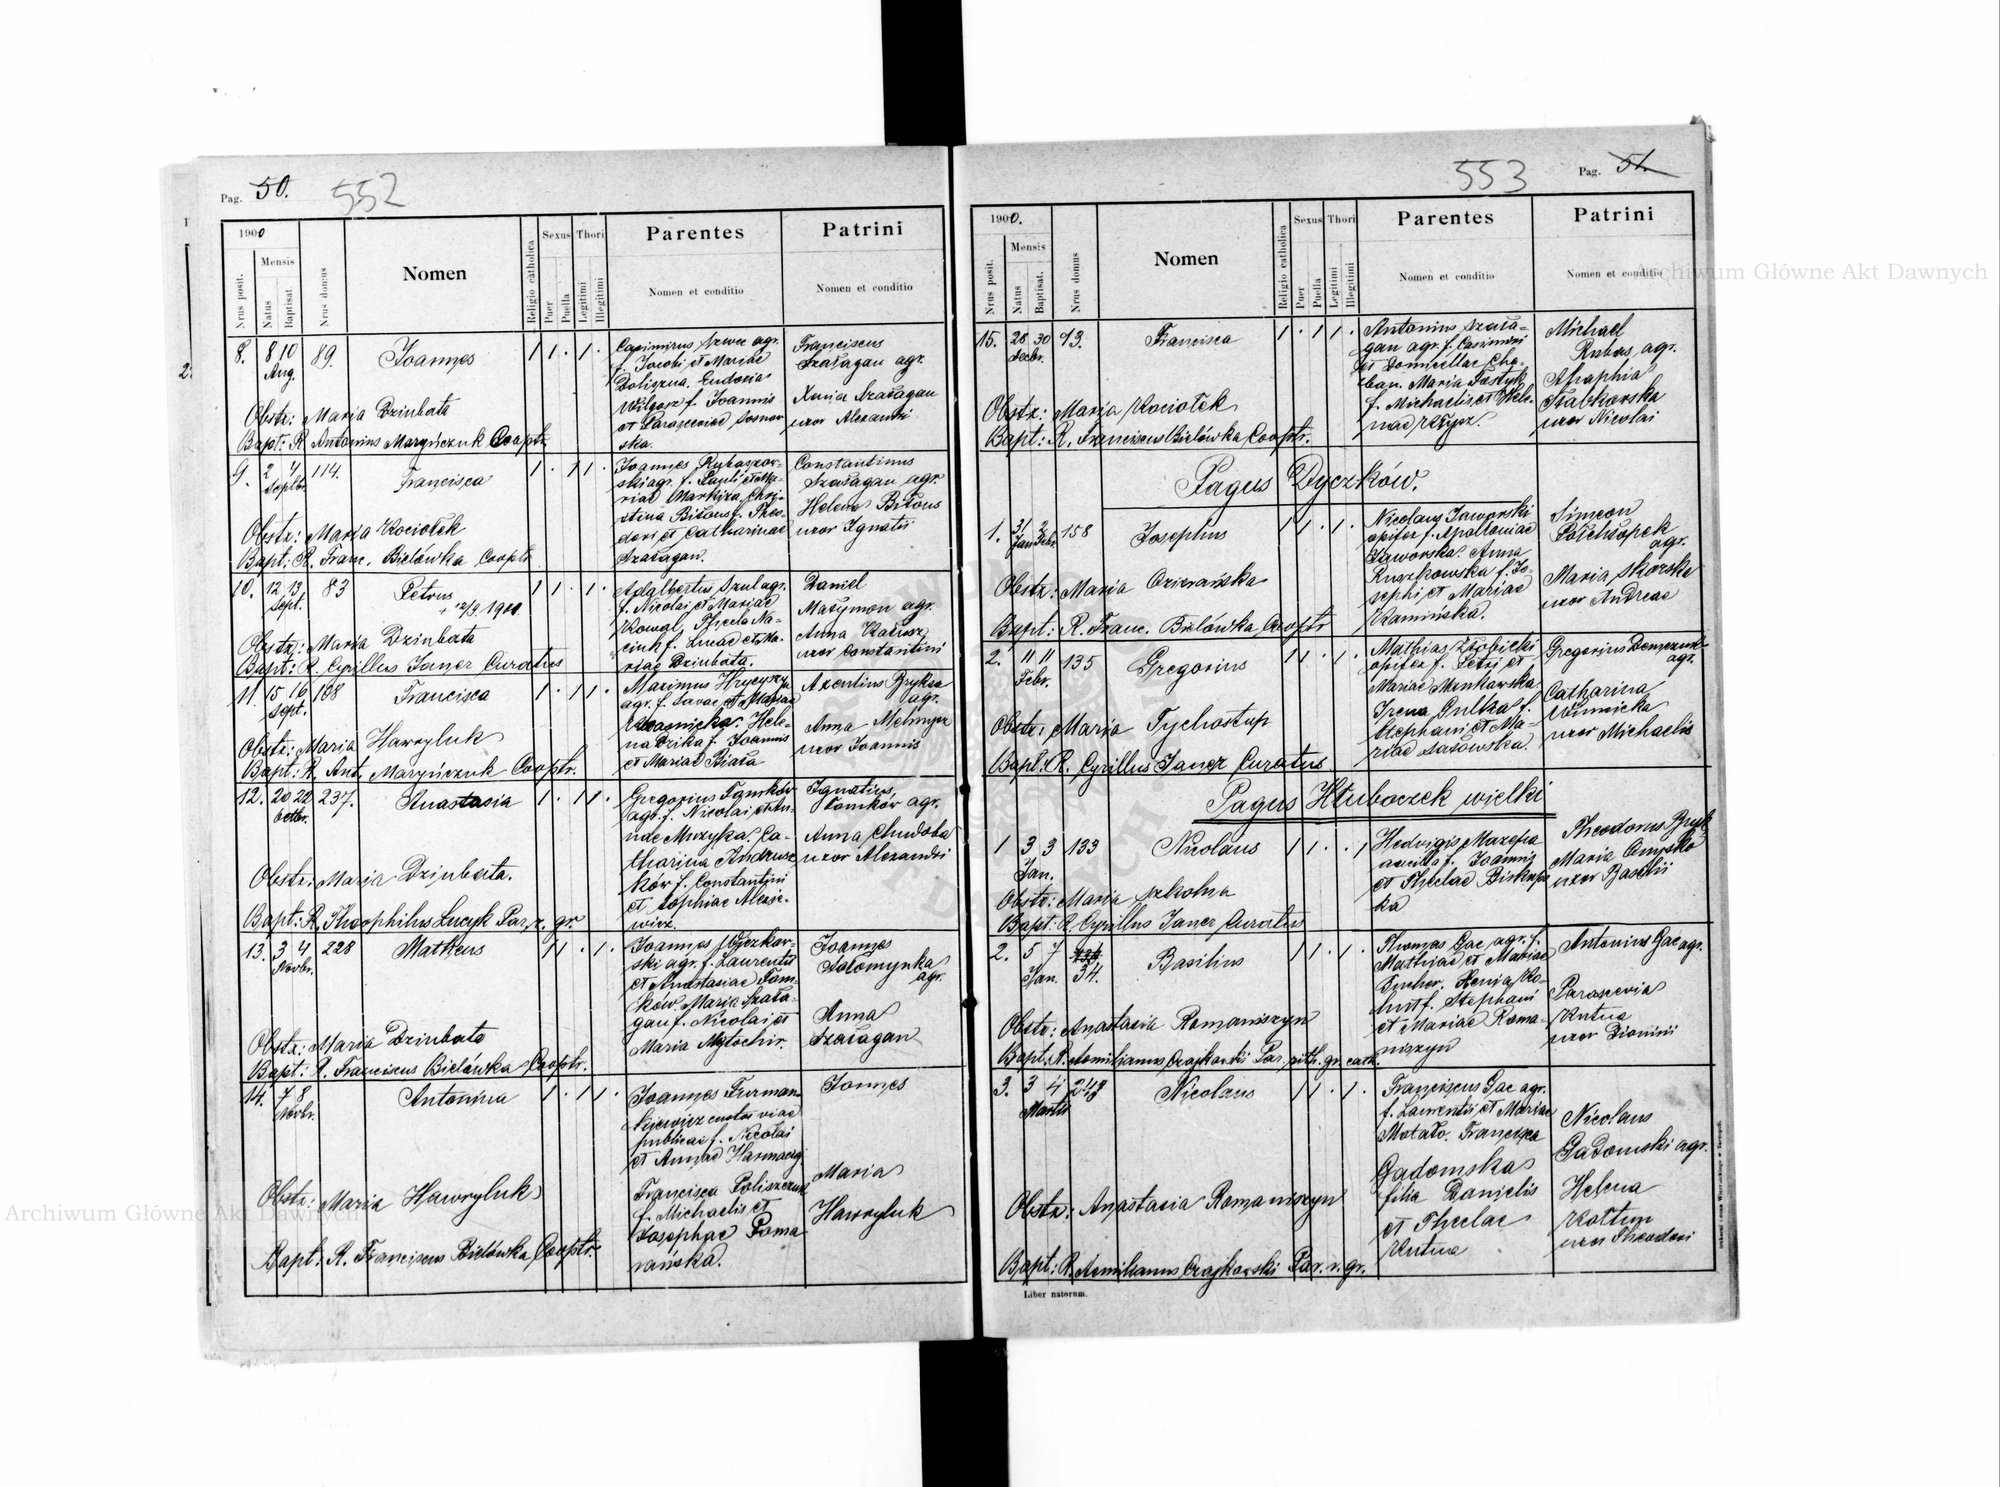 Pag. 50. 552
1900
Nrus posit.
Mensis
Natus
Baptisat.
Nrus domus
Nomen
Religio catholica
Sexus
Puer
Puella
Thori
Legitimi
Illegitimi
Parentes
Nomen et conditio
Patrini
Nomen et conditio
8. 8 10 89. Joannes 1 1 . 1 .
Aug.
Casimirus Szwec agr.
f. Jacobi et Mariae
Doliszna. Eudocia
Wilgosz f. Joannis
et Parasceviae Sosnow
ska.
Franciscus
Szałagan agr.
Xenia Szałagan
uxor Alexandri
Obstr: Maria Dziubata
Bapt: R. Antonius Maryńczuk Cooptr.
9. 2 4 114. Francisca 1 . 1 1 .
Septbr.
Joannes
ski agr. f. Pauli et Ma-
riae Markiza, Chri-
stina Biłous f. Theo-
dori et Catharinae
Szałagan.
Constantinus
Szałagan agr.
Helena Biłous
uxor Ignatii
Obstr: Maria Kociołek
Bapt: R. Franc. Bielówka Cooptr.
10. 12 13 83 Petrus 1 1 . 1 .
Sept. + 12/9 1900.
Adalbertus Szul agr.
f. Nicolai et Mariae
Kowal, Thecla Na-
ciuk f. Lucae et Ma-
riae Dziubata.
Daniel
Matymon agr.
Anna
uxor Constantini
Obstr: Maria Dziubata
Bapt: R. Cyrillus Janer Curatus
11. 15 16 168 Francisca 1 . 1 1 .
Sept.
Maximus Hrycyszyn
agr. f. Savae et Mariae
Hele-
na Dzika f. Joannis
et Mariae Biała
Axentius Bryksa
agr.
Anna Melnyk
uxor Joannis
Obstr: Maria Hawryluk
Bapt: R. Ant. Maryńczuk Cooptr.
12. 20 22 237. Anastasia 1 . 1 1 .
Octbr.
Gregorius Famków
agr. f. Nicolai et An-
nae Muzyka. Ca-
tharina Andrusz
ków f. Constantini
et Sophiae Alexie-
wicz.
Ignatius
Famków agr.
Anna Chudoba
uxor Alexandri
Obstr: Maria Dziubata.
Bapt: R. Theophilus Lucyk Par. r. gr.
13. 3 4 228 Matheus 1 1 . 1 .
Novbr.
Joannes Wyczkow-
ski agr. f. Laurentii
et Anastasiae Fam-
ków. Maria Szała-
gan f. Nicolai et
Maria Mytochir.
Joannes
Sołomynka
agr.
Anna
Szałagan
Obstr: Maria Dziubata
Bapt: R. Franciscus Bielówka Cooptr.
14. 7 8 Antonina 1 . 1 1 .
Novbr.
Joannes Furman-
kiewicz custos viae
publicae f. Nicolai
et Annae Harmacij
Francisca Poliszczuk
f. Michaelis et
Josephae Poma
rańska.
Joannes
Maria
Hawryluk
Obstr: Maria Hawryluk
Bapt: R. Franciscus Bielówka Cooptr.
553 Pag. 51.
1900.
Nrus posit.
Mensis
Natus
Baptisat.
Nrus domus
Nomen
Religio catholica
Sexus
Puer
Puella
Thori
Legitimi
Illegitimi
Parentes
Nomen et conditio
Patrini
Nomen et conditio
15. 28 30 93. Francisca 1 . 1 1 .
Decbr.
Antonius Szała-
gan agr. f. Casimiri
et Domicellae Che-
ban. Maria Fostyk
f. Michaelis et Hele-
nae
Michael
Rubas, agr.
Ahaphia
Stabkowska
uxor Nicolai
Obstr: Maria Kociołek
Bapt: R. Franciscus Bielówka Cooptr.
Pagus Dyczków.
1. 31 2 158 Josephus 1 1 . 1 .
Jan. Febr.
Nicolaus Jaworski
opifex f. Apolloniae
Jaworska. Anna
Ruszkowska f. Jo-
sephi et Mariae
Kamińska.
Simeon
Półchłopek
agr.
Maria Skorska
uxor Andreae
Obstr: Maria Ozierańska
Bapt: R. Franc. Bielówka Cooptr
2. 11 11 135 Gregorius 1 1 . 1 .
Febr.
Mathias Złobicki
opifex f. Petri et
Mariae Mrukowska.
Irena Gulka f.
Stephani et Ma-
riae Sasowska.
Gregorius Demczuk
agr.
Catharina
Winnicka
uxor Michaelis
Obstr: Maria Tychostup
Bapt: R. Cyrillus Janer Curatus
Pagus Hłuboczek wielki
1 3 3 133 Nicolaus 1 1 . . 1
Jan.
Hedvigis Mazepa
ancilla f. Joannis
et Theclae Biskups
ka
Theodorus Bryk
Maria
uxor Basilii
Obstr: Maria Szkolna
Bapt: R. Cyrillus Janer Curatus
2. 5 7 34. Basilius 1 1 . 1 .
Jan.
Thomas Gac agr. f.
Mathiae et Mariae
Puchor. Xenia Ko-
hut f. Stephani
et Mariae Roma-
niszyn
Antonius Gac agr.
Parascevia
Kutna
uxor Dionisii
Obstr: Anastasia Romaniszyn
Bapt: R. Aemilianus Czajkowski Par. rith. gr. cath.
3. 3 4 242 Nicolaus 1 1 . 1 .
Martii
Franciscus Gac agr.
f. Laurentii et Mariae
Matało. Francisca
Gadomska
filia Danielis
et Theclae
Kutna
Nicolaus
Gadomski agr.
Helena
Kottun
uxor Theodori
Obstr: Anastasia Romaniszyn
Bapt: R. Aemilianus Czajkowski Par. r. gr.
Liber natorum.
Archiwum Główne Akt Dawnych
Archiwum Główne Akt Dawnych